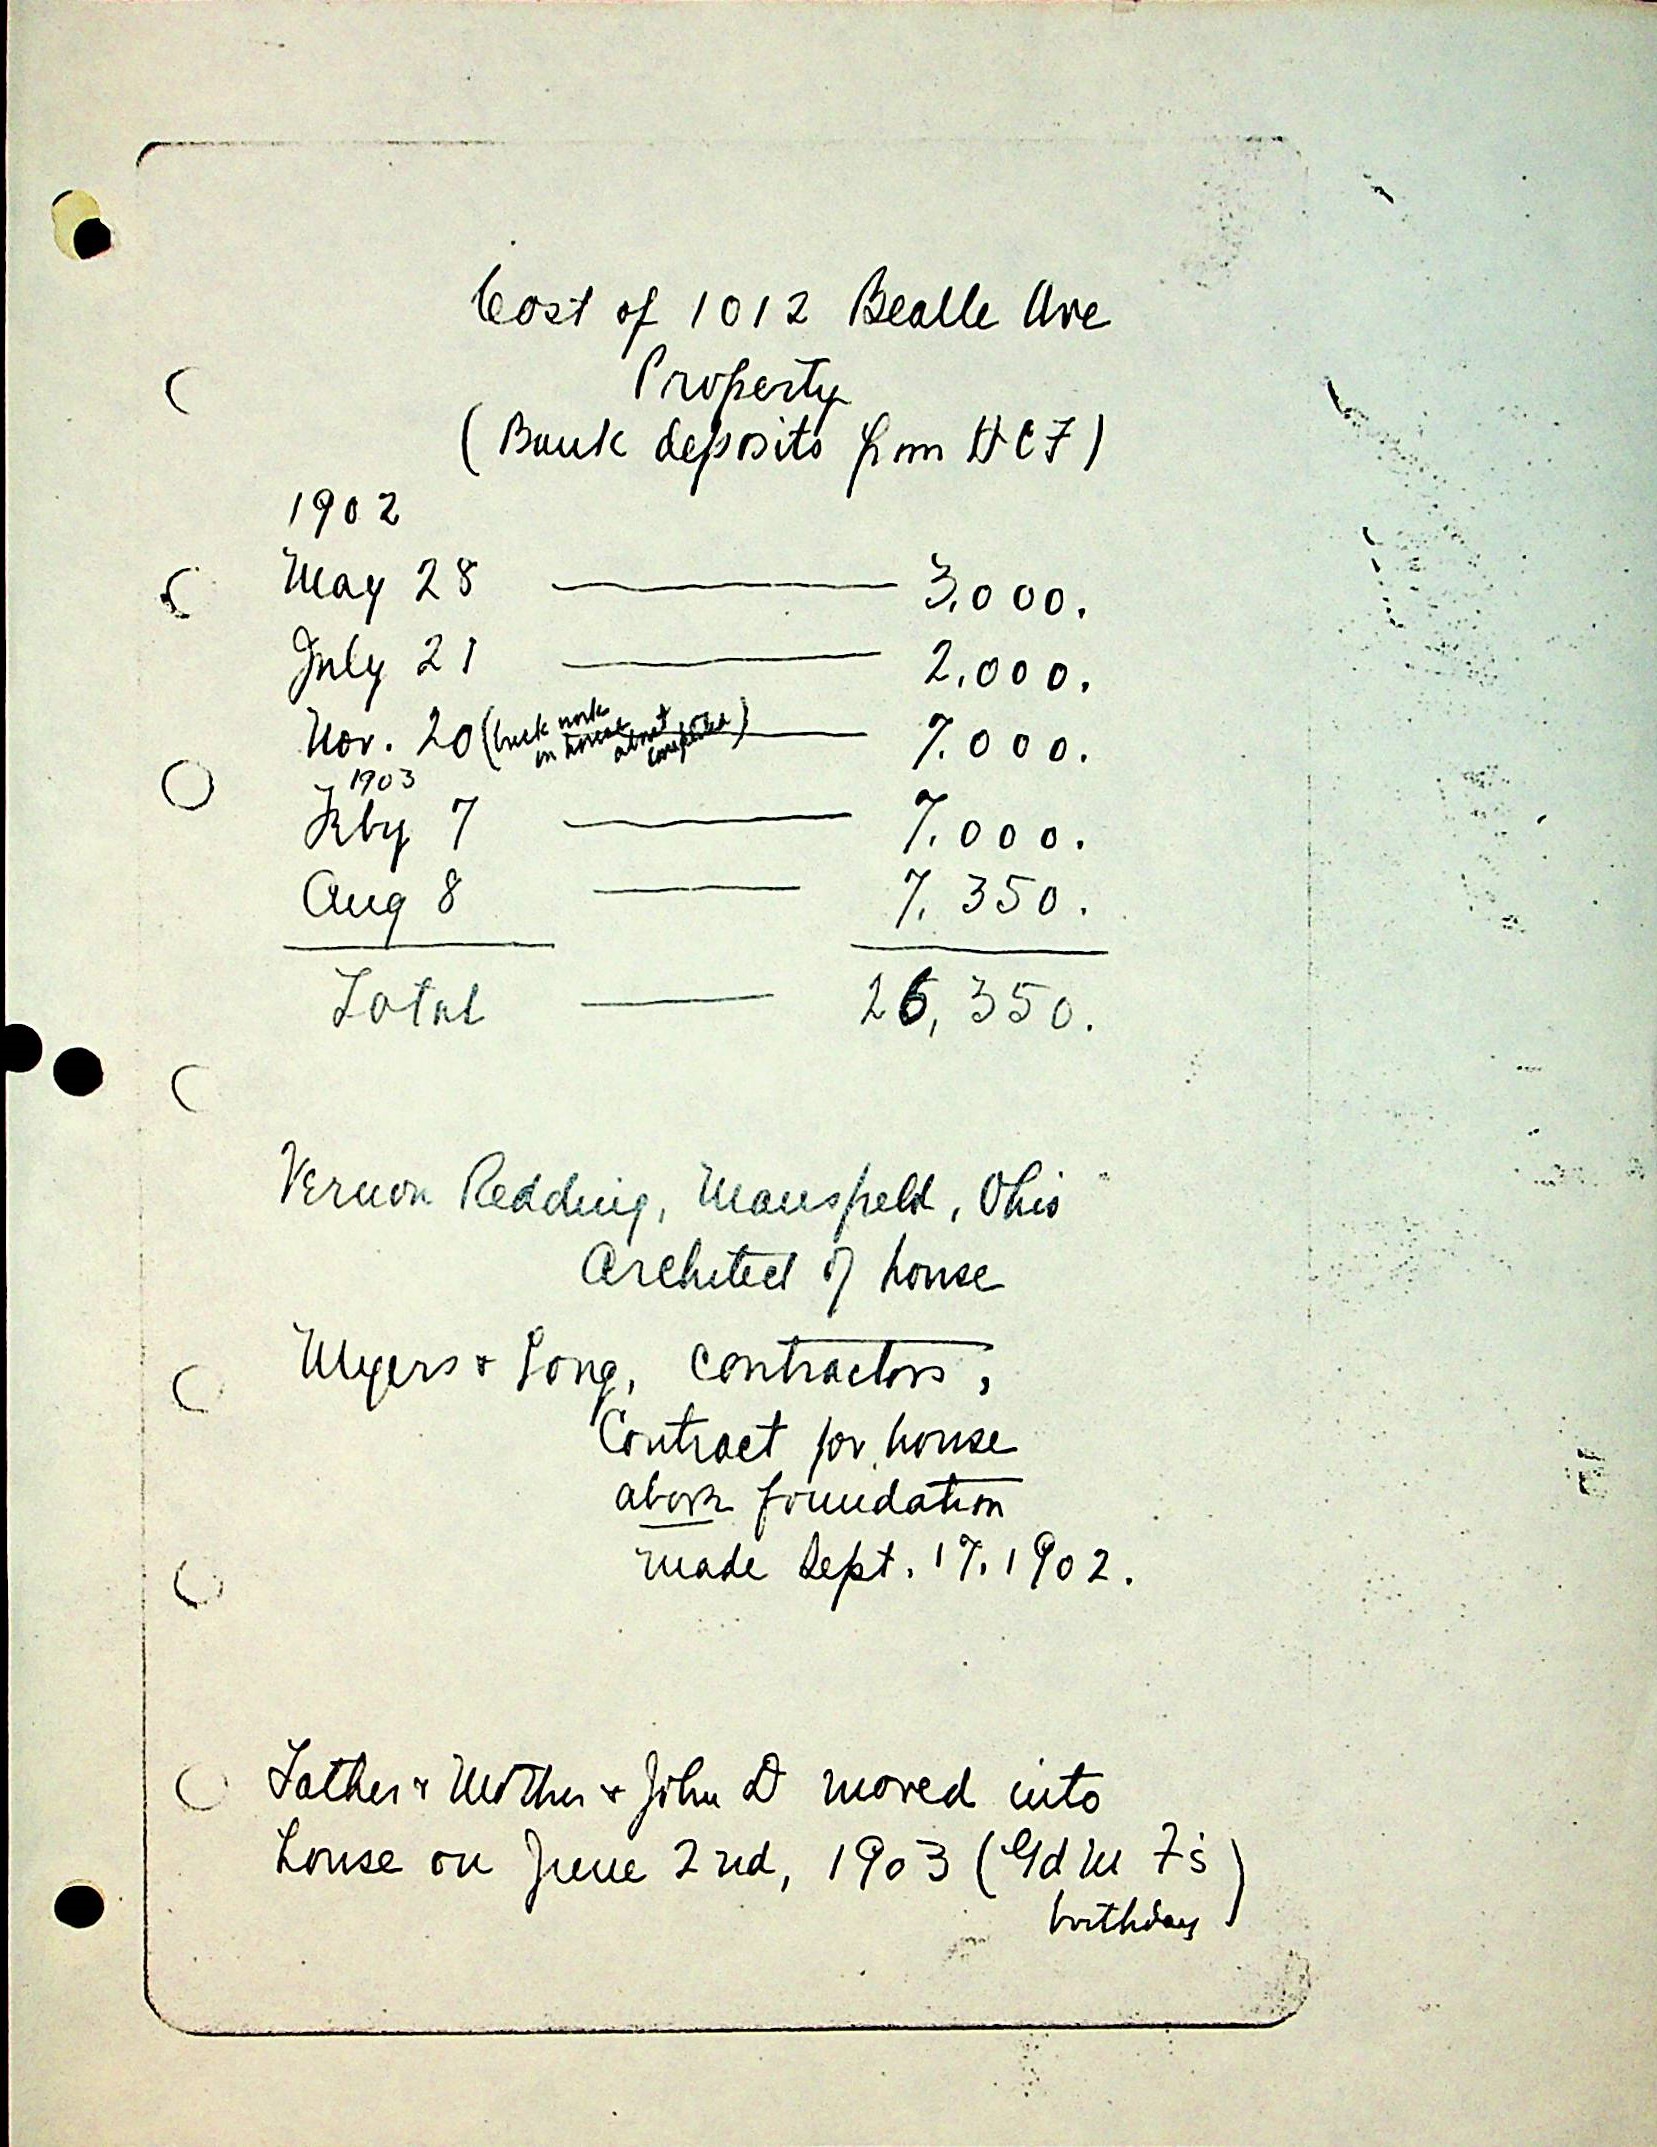 Cost of 1012 Bealle Ave
Property
(Bank deposits from HCF)
1902
May 28 — 3,000.
July 21 — 2,000.
Nov. 20 (brick work in house about completed) — 7,000.
1903
Feby 7 — 7,000.
Aug 8 — 7,350.
Total — 26,350.
Vernon Redding, Mansfield, Ohio
Architect of house
Myers & Long, contractors,
Contract for house
above foundation
made Sept. 17, 1902.
Father & Mother & John D moved into
house on June 2nd, 1903 (GdM F's
birthday)